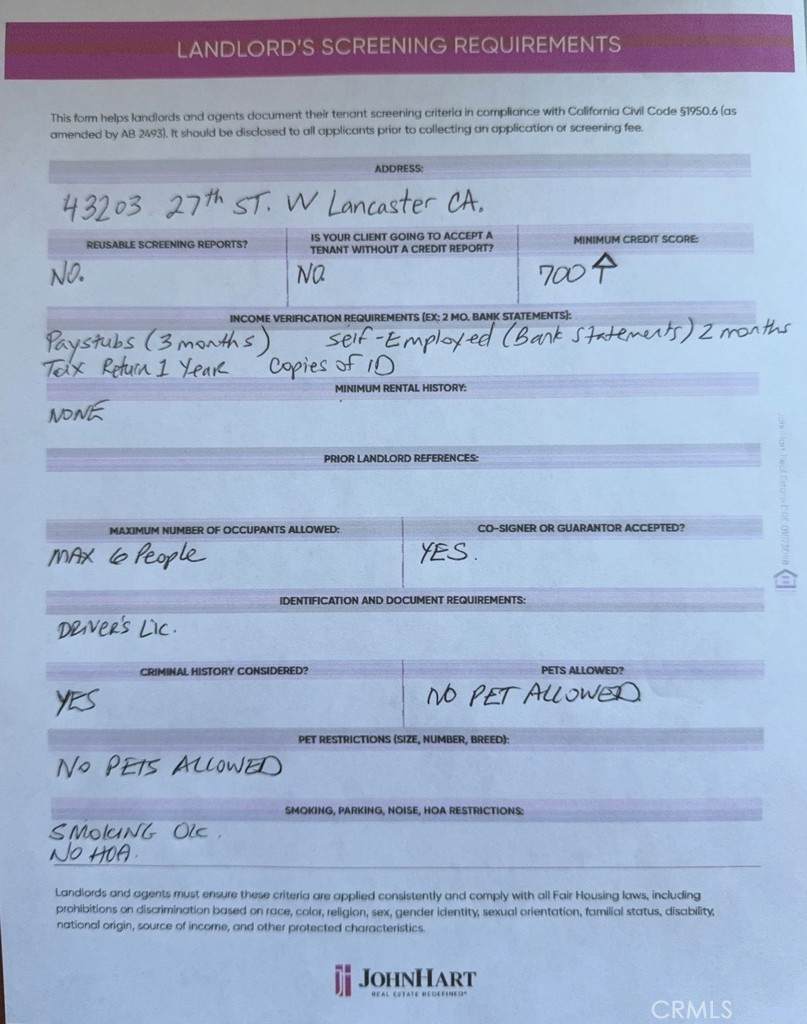 LANDLORD'S SCREENING REQUIREMENTS
This form helps landlords and agents document their tenant screening criteria in compliance with California Civil Code §1950.6 (as
amended by AB 2493). It should be disclosed to all applicants prior to collecting an application or screening fee.
ADDRESS:
43203 27th ST. W Lancaster CA.
REUSABLE SCREENING REPORTS?
NO.
IS YOUR CLIENT GOING TO ACCEPT A
TENANT WITHOUT A CREDIT REPORT?
NO.
MINIMUM CREDIT SCORE:
700 ↑
INCOME VERIFICATION REQUIREMENTS (EX: 2 MO. BANK STATEMENTS):
Paystubs (3 months) Self-Employed (Bank Statements) 2 months
Tax Return 1 Year Copies of ID
MINIMUM RENTAL HISTORY:
NONE
PRIOR LANDLORD REFERENCES:
MAXIMUM NUMBER OF OCCUPANTS ALLOWED:
MAX 6 People
CO-SIGNER OR GUARANTOR ACCEPTED?
YES.
IDENTIFICATION AND DOCUMENT REQUIREMENTS:
DRIVER'S LIC.
CRIMINAL HISTORY CONSIDERED?
YES
PETS ALLOWED?
NO PET ALLOWED
PET RESTRICTIONS (SIZE, NUMBER, BREED):
NO PETS ALLOWED
SMOKING, PARKING, NOISE, HOA RESTRICTIONS:
SMOKING OK.
NO HOA.
Landlords and agents must ensure these criteria are applied consistently and comply with all Fair Housing laws, including
prohibitions on discrimination based on race, color, religion, sex, gender identity, sexual orientation, familial status, disability,
national origin, source of income, and other protected characteristics.
JOHNHART
REAL ESTATE REDEFINED®
CRMLS